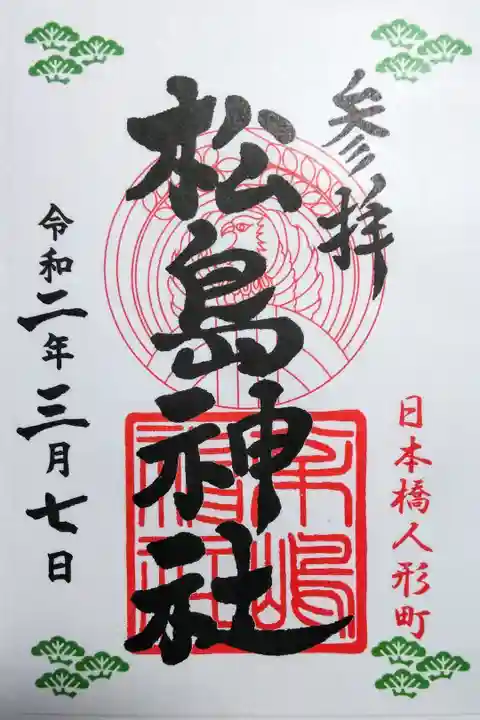 参拝
日本橋人形町
松島神社
令和二年三月七日